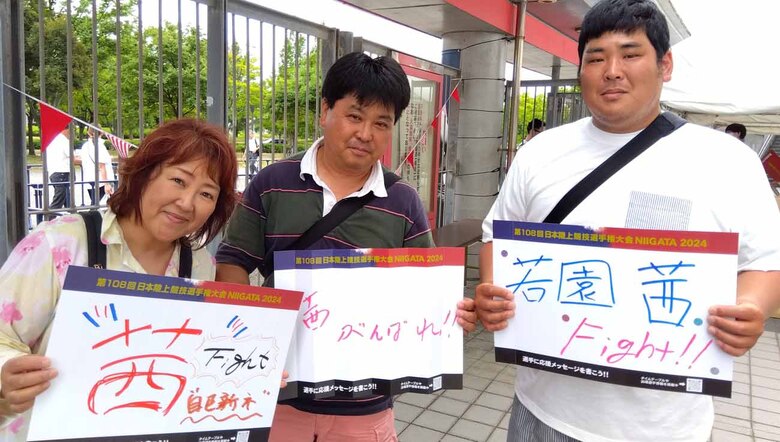 第108回日本陸上競技選手権大会NIIGATA 2024
茜
Fight
自己新を
選手に応援メッセージを書こう!!
第108回日本陸上競技選手権大会NIIGATA 2024
茜
がんばれ!!
選手に応援メッセージを書こう!!
タイムテーブルや
第108回日本陸上競技選手権大会NIIGATA 2024
若園 茜
Fight!!
選手に応援メッセージを書こう!!
タイムテーブルや